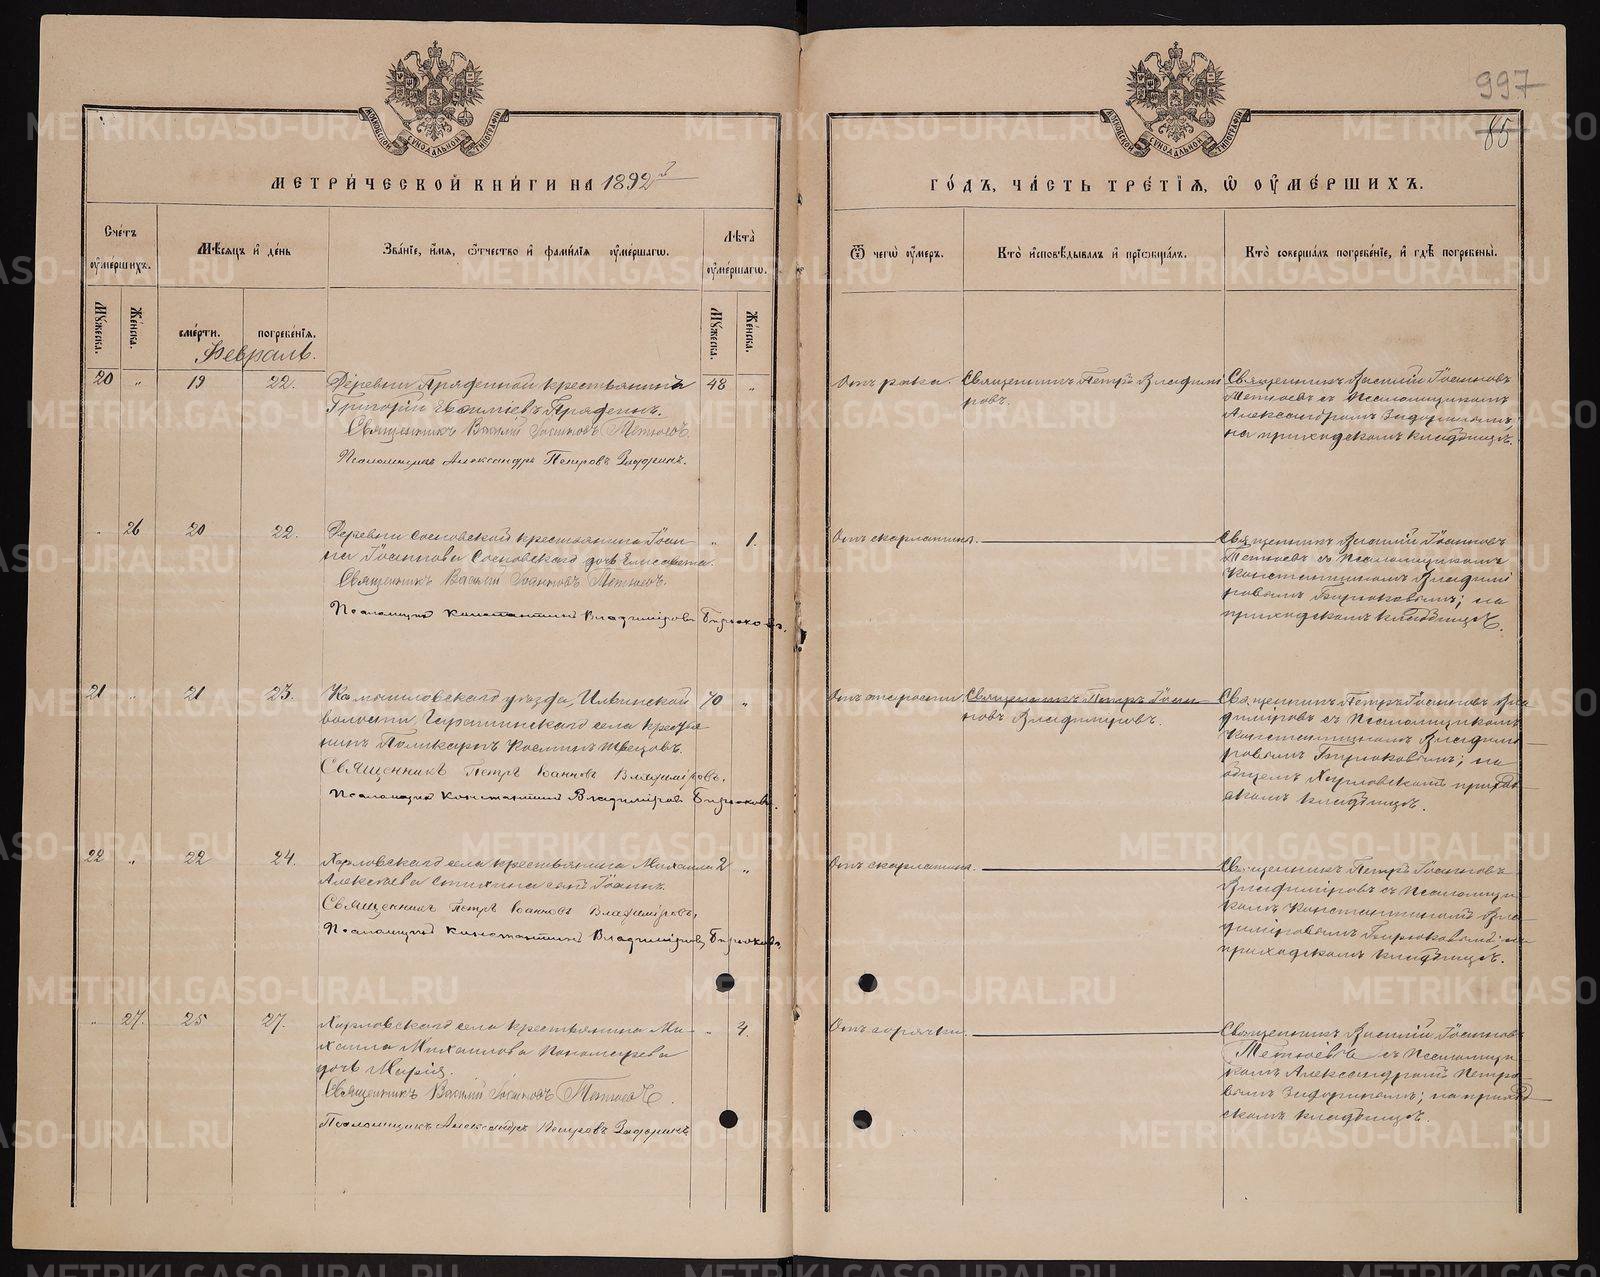 997
85
МЕТРИ́ЧЕСКОЙ КНИ́ГИ НА 1892й
ГО́ДЪ, ЧА́СТЬ ТРЕ́ТІѦ, Ѡ ОУМЕ́РШИХЪ.
Сче́тъ оуме́ршихъ.
Мѣ́сяцъ и де́нь
Зва́ніе, и́мя, о́тчество и фами́лія оуме́ршагѡ.
Лѣ́та оуме́ршагѡ.
Ѿ чегѡ̀ оу́меръ.
Кто̀ исповѣ́дывалъ и прїѡбща́лъ.
Кто̀ соверша́лъ погребе́ніе, и гдѣ̀ погребены̀.
Му́жеска. Же́нска. сме́рти. погребе́нія. Му́жеска. Же́нска.
Февраль.
20 " 19 22. Деревни Пряденной крестьянинъ 48 "
Григорій Евѳиміевъ Пряденъ.
Священникъ Василій Іоанновъ Тетюевъ
Псаломщикъ Александръ Петровъ Задоринъ.
Отъ рака. Священникъ Петръ Владиміровъ.
Священникъ Василій Іоанновъ
Тетюевъ съ Псаломщикомъ
Александромъ Задоринымъ;
на приходскомъ кладбищѣ.
" 26 20 22. Деревни Сосновской крестьянина Іоан- " 1.
на Іоаннова Сосновскаго дочь Елисавета.
Священникъ Василій Іоанновъ Тетюевъ.
Псаломщикъ Константинъ Владиміровъ Бирюковъ.
Отъ скарлатины.
Священникъ Василій Іоанновъ
Тетюевъ съ Псаломщикомъ
Константиномъ Владимі
ровымъ Бирюковымъ; на
приходскомъ кладбищѣ.
21 " 21 23. Камышловскаго уѣзда, Ильинской 70 "
волости, Гарашинскаго села крестья
нинъ Поликарпъ Космин Швецовъ.
Священникъ Петръ Іоанновъ Владиміровъ.
Псаломщикъ Константинъ Владиміровъ Бирюковъ.
Отъ старости. Священникъ Петръ Іоан
новъ Владиміровъ.
Священникъ Петръ Іоанновъ Вла
диміровъ съ Псаломщикомъ
Константиномъ Владимі
ровымъ Бирюковымъ; на
общемъ Харловскомъ приход
скомъ кладбищѣ.
22 " 22 24. Харловскаго села крестьянина Михаила 2 "
Алексѣева Стихина сынъ Іоаннъ.
Священникъ Петръ Іоанновъ Владиміровъ.
Псаломщикъ Константинъ Владиміровъ Бирюковъ.
Отъ скарлатины.
Священникъ Петръ Іоанновъ
Владиміровъ съ Псаломщи
комъ Константиномъ Вла
диміровымъ Бирюковымъ; на
приходскомъ кладбищѣ.
" 27. 25 27. Харловскаго села крестьянина Ми- " 4.
хаила Михаилова Пономарева
дочь Марія.
Священникъ Василій Іоанновъ Тетюевъ.
Псаломщикъ Александръ Петровъ Задоринъ
Отъ горячки.
Священникъ Василій Іоанновъ
Тетюевъ съ Псаломщи
комъ Александромъ Петро
вымъ Задоринымъ; на приход
скомъ кладбищѣ.
METRIKI.GASO-URAL.RU